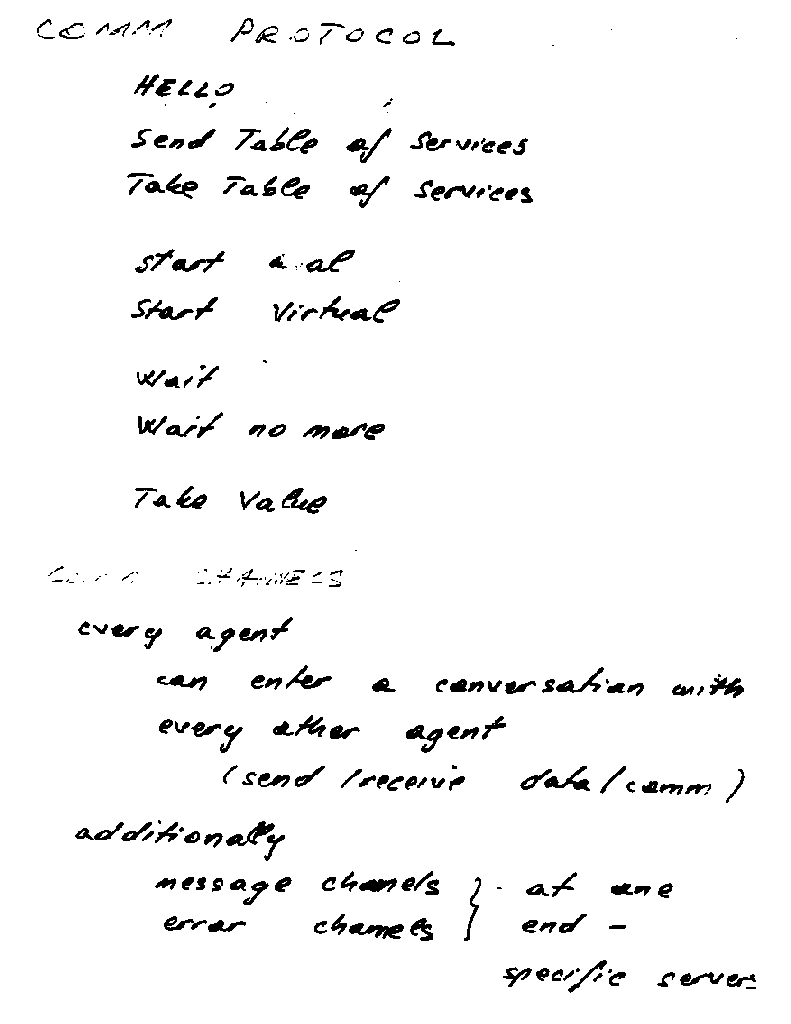 COMM PROTOCOL
HELLO
Send Table of Services
Take Table of Services
Start
Start Virtual
Wait
Wait no more
Take Value
CHANNELS
every agent
can enter a conversation with
every other agent
(send / receive data / comm)
additionally
message chanels } at one
error chanels } end -
specific servers